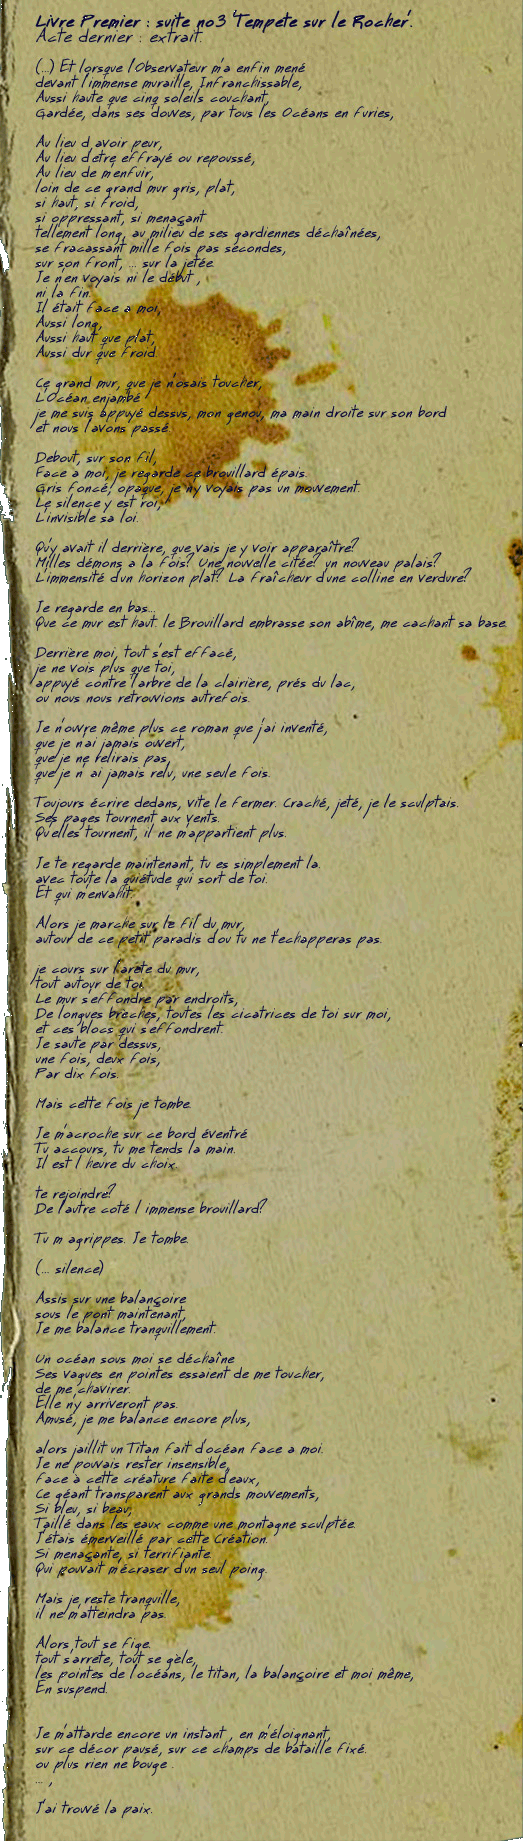 Livre Premier : suite no3 'Tempete sur le Rocher'.
Acte dernier : extrait.
(...) Et lorsque l'Observateur m'a enfin mené
devant l'immense muraille, Infranchissable,
Aussi haute que cinq soleils couchant,
Gardée, dans ses douves, par tous les Océans en furies,
Au lieu d'avoir peur,
Au lieu d'etre effrayé ou repoussé,
Au lieu de m'enfuir,
loin de ce grand mur gris, plat,
si haut, si froid,
si oppressant, si menaçant
tellement long, au milieu de ses gardiennes déchaînées,
se fracassant mille fois pas secondes,
sur son front, ... sur la jetée.
Je n'en voyais ni le début ,
ni la fin.
Il était face a moi,
Aussi long,
Aussi haut que plat,
Aussi dur que froid.
Ce grand mur, que je n'osais toucher,
L'Océan enjambé
je me suis appuyé dessus, mon genou, ma main droite sur son bord
et nous l'avons passé.
Debout, sur son fil,
Face a moi, je regarde ce brouillard épais.
Gris foncé, opaque, je n'y voyais pas un mouvement.
Le silence y est roi,
L'invisible sa loi.
Qu'y avait il derrière, que vais je y voir apparaître?
Milles démons a la fois? Une nouvelle citée? un nouveau palais?
L'immensité d'un horizon plat? La fraîcheur d'une colline en verdure?
Je regarde en bas...
Que ce mur est haut. le Brouillard embrasse son abîme, me cachant sa base.
Derrière moi, tout s'est effacé,
je ne vois plus que toi,
appuyé contre l'arbre de la clairière, prés du lac,
ou nous nous retrouvions autrefois.
Je n'ouvre même plus ce roman que j'ai inventé,
que je n'ai jamais ouvert,
que je ne relirais pas,
que je n' ai jamais relu, une seule fois.
Toujours écrire dedans, vite le fermer. Craché, jeté, je le sculptais.
Ses pages tournent aux vents.
Qu'elles tournent, il ne m'appartient plus.
Je te regarde maintenant, tu es simplement la.
avec toute la quiétude qui sort de toi.
Et qui m'envahit.
Alors je marche sur le fil du mur,
autour de ce petit paradis d'ou tu ne t'echapperas pas.
je cours sur l'arete du mur,
tout autour de toi.
Le mur s'effondre par endroits,
De longues breches, toutes les cicatrices de toi sur moi,
et ces blocs qui s'effondrent.
Je saute par dessus,
une fois, deux fois,
Par dix fois.
Mais cette fois je tombe.
Je m'acroche sur ce bord éventré
Tu accours, tu me tends la main.
Il est l'heure du choix.
te rejoindre?
De l'autre coté l'immense brouillard?
Tu m'agrippes. Je tombe.
(... silence)
Assis sur une balançoire
sous le pont maintenant,
Je me balance tranquillement.
Un océan sous moi se déchaîne
Ses vagues en pointes essaient de me toucher,
de me chavirer.
Elle n'y arriveront pas.
Amusé, je me balance encore plus,
alors jaillit un Titan fait d'océan face a moi.
Je ne pouvais rester insensible,
face à cette créature faite d'eaux,
Ce géant transparent aux grands mouvements,
Si bleu, si beau,
Taillé dans les eaux comme une montagne sculptée.
J'étais émerveillé par cette Création.
Si menaçante, si terrifiante.
Qui pouvait m'écraser d'un seul poing.
Mais je reste tranquille,
il ne m'atteindra pas.
Alors tout se fige.
tout s'arrete, tout se gèle,
les pointes de l'océans, le titan, la balançoire et moi même,
En suspend.
Je m'attarde encore un instant , en m'éloignant,
sur ce décor pausé, sur ce champs de bataille fixé.
ou plus rien ne bouge .
... ,
J'ai trouvé la paix.